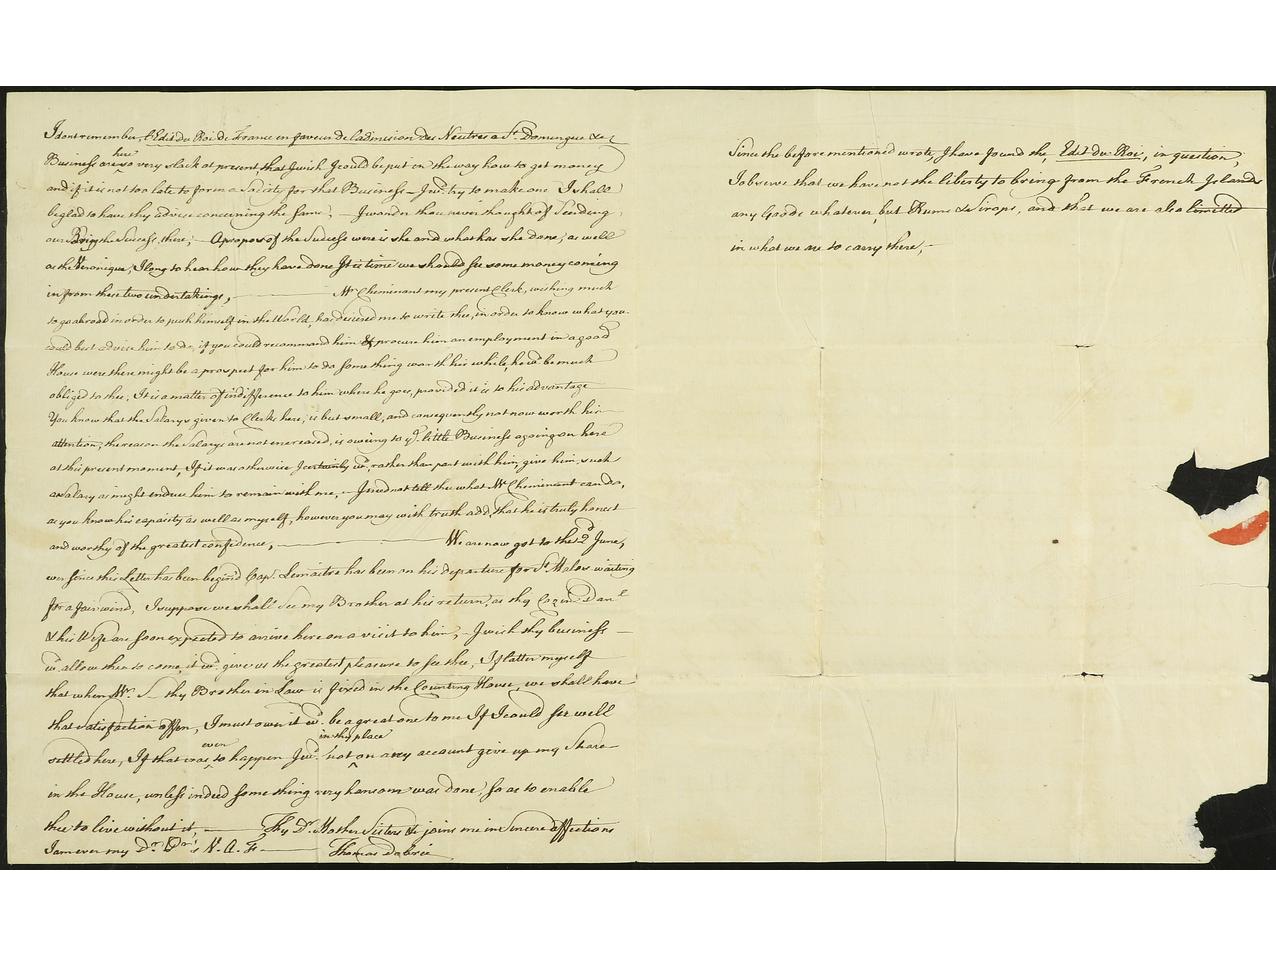 I dont remember, l'Edit du Roi de France en faveur de l'admission des Neutres a St. Domengue &c
Business are here so very slack at present, that I wish I could be put on the way how to get money
and if it is not too late to form a Society for that Business - I wd. try to make one I shall
be glad to have thy advise concerning the same, - I wonder thou never thought of Sending
our Brig the Sucess, there; - Apropos of the Success were is she and what has she done; as well
as the Veronique; I long to hear how they have done It is time we should see some money coming
in from these two undertakings, — Mr Cheminant my present Clerk, wishing much
to go abroad in order to push himself in the World, has desired me to write thee, in order to know what you
could best advise him to do, if you could recommend him & procure him an employment in a good
House were there might be a prospect for him to do something worth his while, he wd. be much
obliged to thee; It is a matter of indifference to him where he goes, provided it is to his advantage
You know that the Salarys given to Clerks here, is but small, and consequently not now worth his
attention; the reason the Salarys are not encreased, is owing to ye. little Business agoing on here
at this present moment, If it was otherwise I certainly wd. rather than part with him, give him such
a Salary as might enduce him to remain with me, - I need not tell thee what Mr Cheminant can do,
as you know his capacity as well as myself, however you may with truth add, that he is truly honest
and worthy of the greatest confidence, — We are now got to the 2d June,
ever since this Letter has been begun'd Cap. Lemaitre has been on his departure for St. Malos waiting
for a fair wind, I suppose we shall see my Brother at his return, as thy Cozin Danl
& his Wife are soon expected to arrive here on a visit to him, - I wish thy business
wd. allow thee to come, it wd. give us the greatest pleasure to see thee, I flatter myself
that when Mr. S— thy Brother in Law is fixed in the Counting House, we shall have
that satisfaction often, I must own it wd. be a great one to me If I could see well
settled here, If that was even to happen I wd. in thy place not on any account give up my Share
in the House, unless indeed some thing very hansom was done, so as to enable
thee to live without it — Thy Dr. Mother Sisters &c joins me in Sincere affections
I am ever my Dr. Brs. N. A. F. — Thomas Dobrée
Since the before mentioned wrote, I have found the Edit du Roi, in question,
I observe that we have not the liberty to bring from the French Islands
any Goods whatever, but Rums & Sirops, and that we are also limitted
in what we are to carry there, -